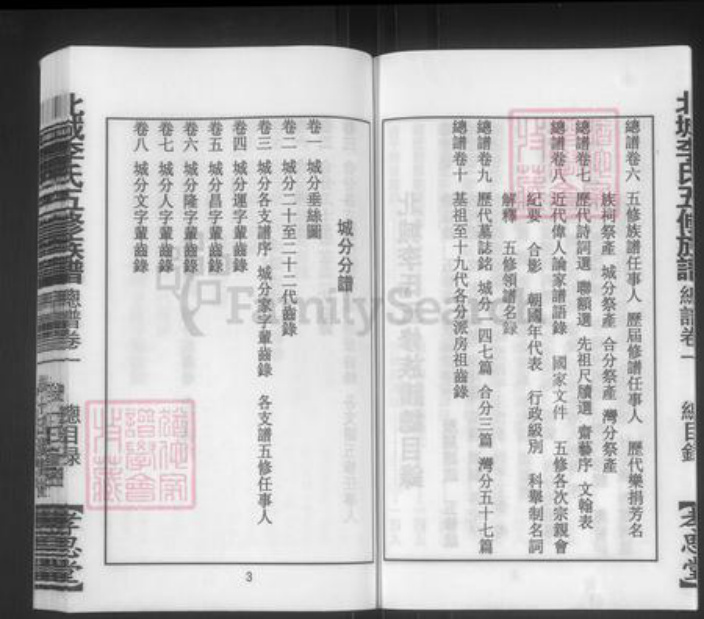 北城李氏五修族譜 總譜卷一 總目錄 【孝思堂】
總譜卷六 五修族譜任事人 歷屆修譜任事人 歷代樂捐芳名
族祠祭產 城分祭產 合分祭產 灣分祭產
總譜卷七 歷代詩詞選 聯額選 先祖尺牘選 齋藝序 文翰表
總譜卷八 近代偉人論家譜語錄 國家文件 五修各次宗親會
紀要 合影 朝國年代表 行政級別 科舉制名詞
解釋 五修領譜名録
總譜卷九 歷代墓誌銘 城分 四七篇 合分三篇 灣分五十七篇
總譜卷十 基祖至十九代各分派房祖齒錄
城分分譜
卷一 城分垂絲圖
卷二 城分二十至二十二代齒錄
卷三 城分各支譜序 城分家字輩齒錄 各支譜五修任事人
卷四 城分運字輩齒錄
卷五 城分昌字輩齒錄
卷六 城分隆字輩齒錄
卷七 城分人字輩齒錄
卷八 城分文字輩齒錄
北城李氏五修族譜 總譜卷一 總目录 【孝思堂】
3
FamilySearch